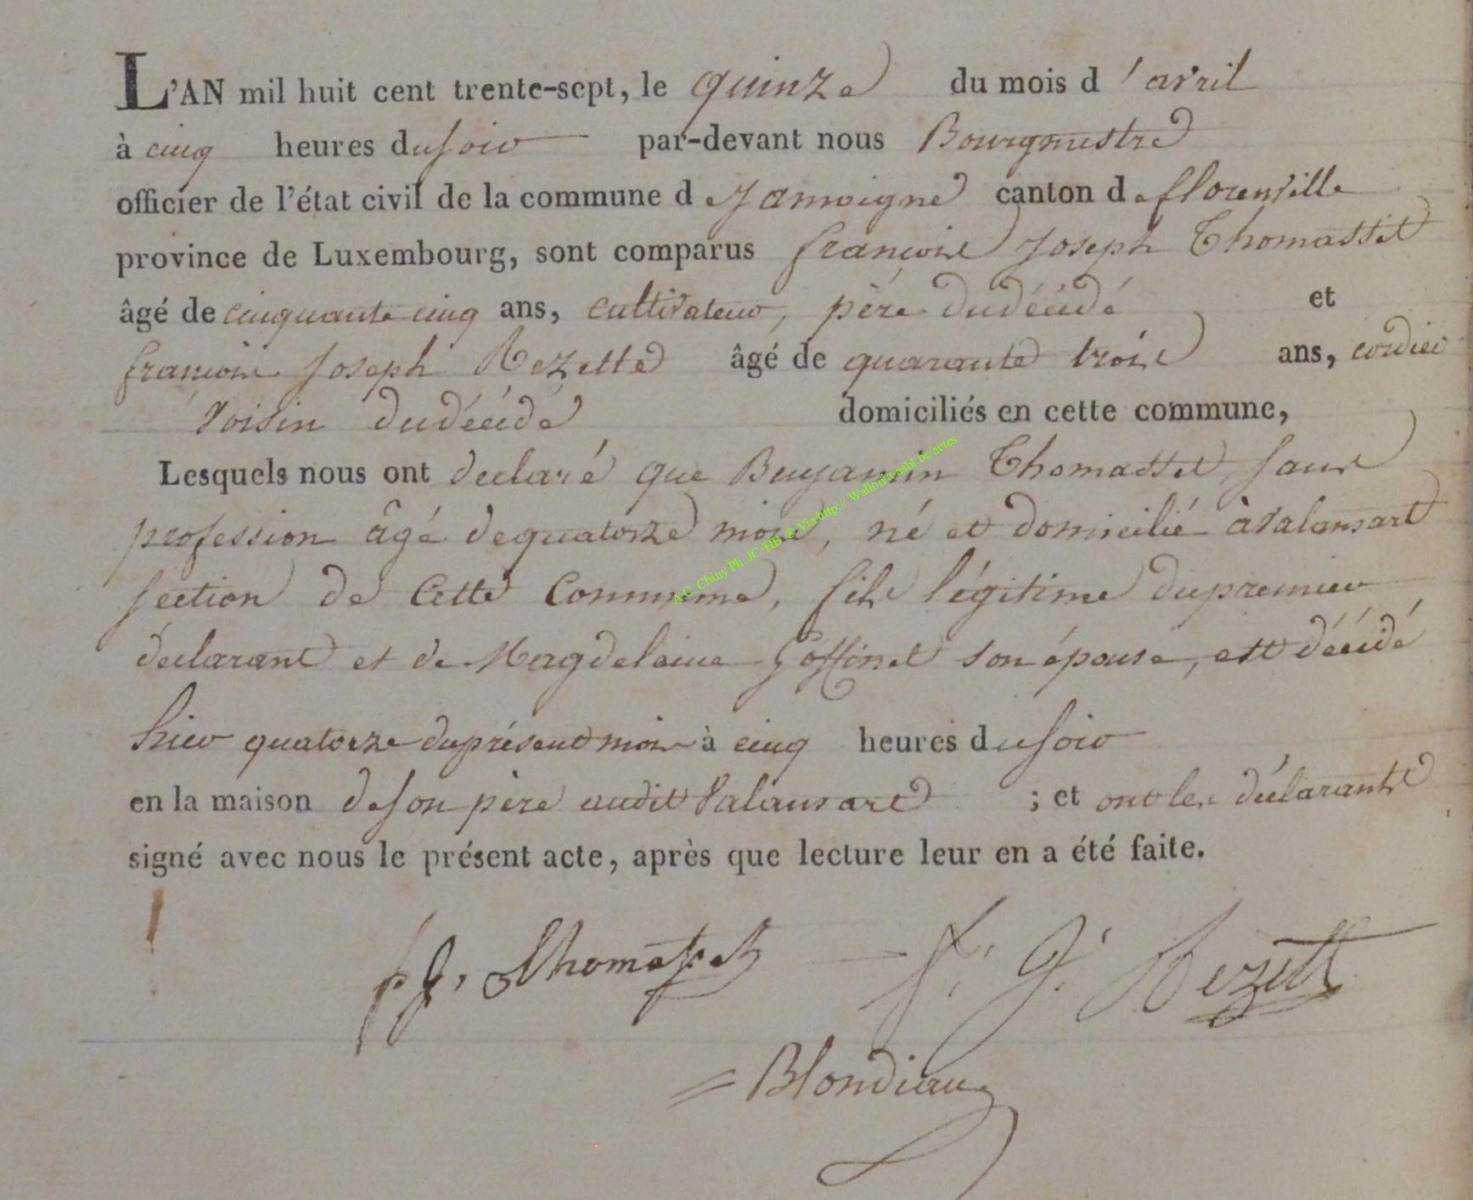 L'AN mil huit cent trente-sept, le quinze du mois d'avril
à cinq heures du soir par-devant nous Bourgmestre
officier de l'état civil de la commune de Jamoigne canton de florenville
province de Luxembourg, sont comparus françois Joseph Thomasset
âgé de cinquante cinq ans, cultivateur, père du décédé et
françois Joseph Rezette âgé de quarante trois ans, cordier
voisin du décédé domiciliés en cette commune,
Lesquels nous ont déclaré que Benjamin Thomasset, sans
profession âgé de quatorze mois, né et domicilié à Valansart
section de cette commune, fils légitime du premier
déclarant et de Magdelaine Goffinet son épouse, est décédé
hier quatorze du présent mois à cinq heures du soir
en la maison de son père audit Valansart ; et ont les déclarants
signé avec nous le présent acte, après que lecture leur en a été faite.
f J. Thomasset F. J. Rezett
Blondiau